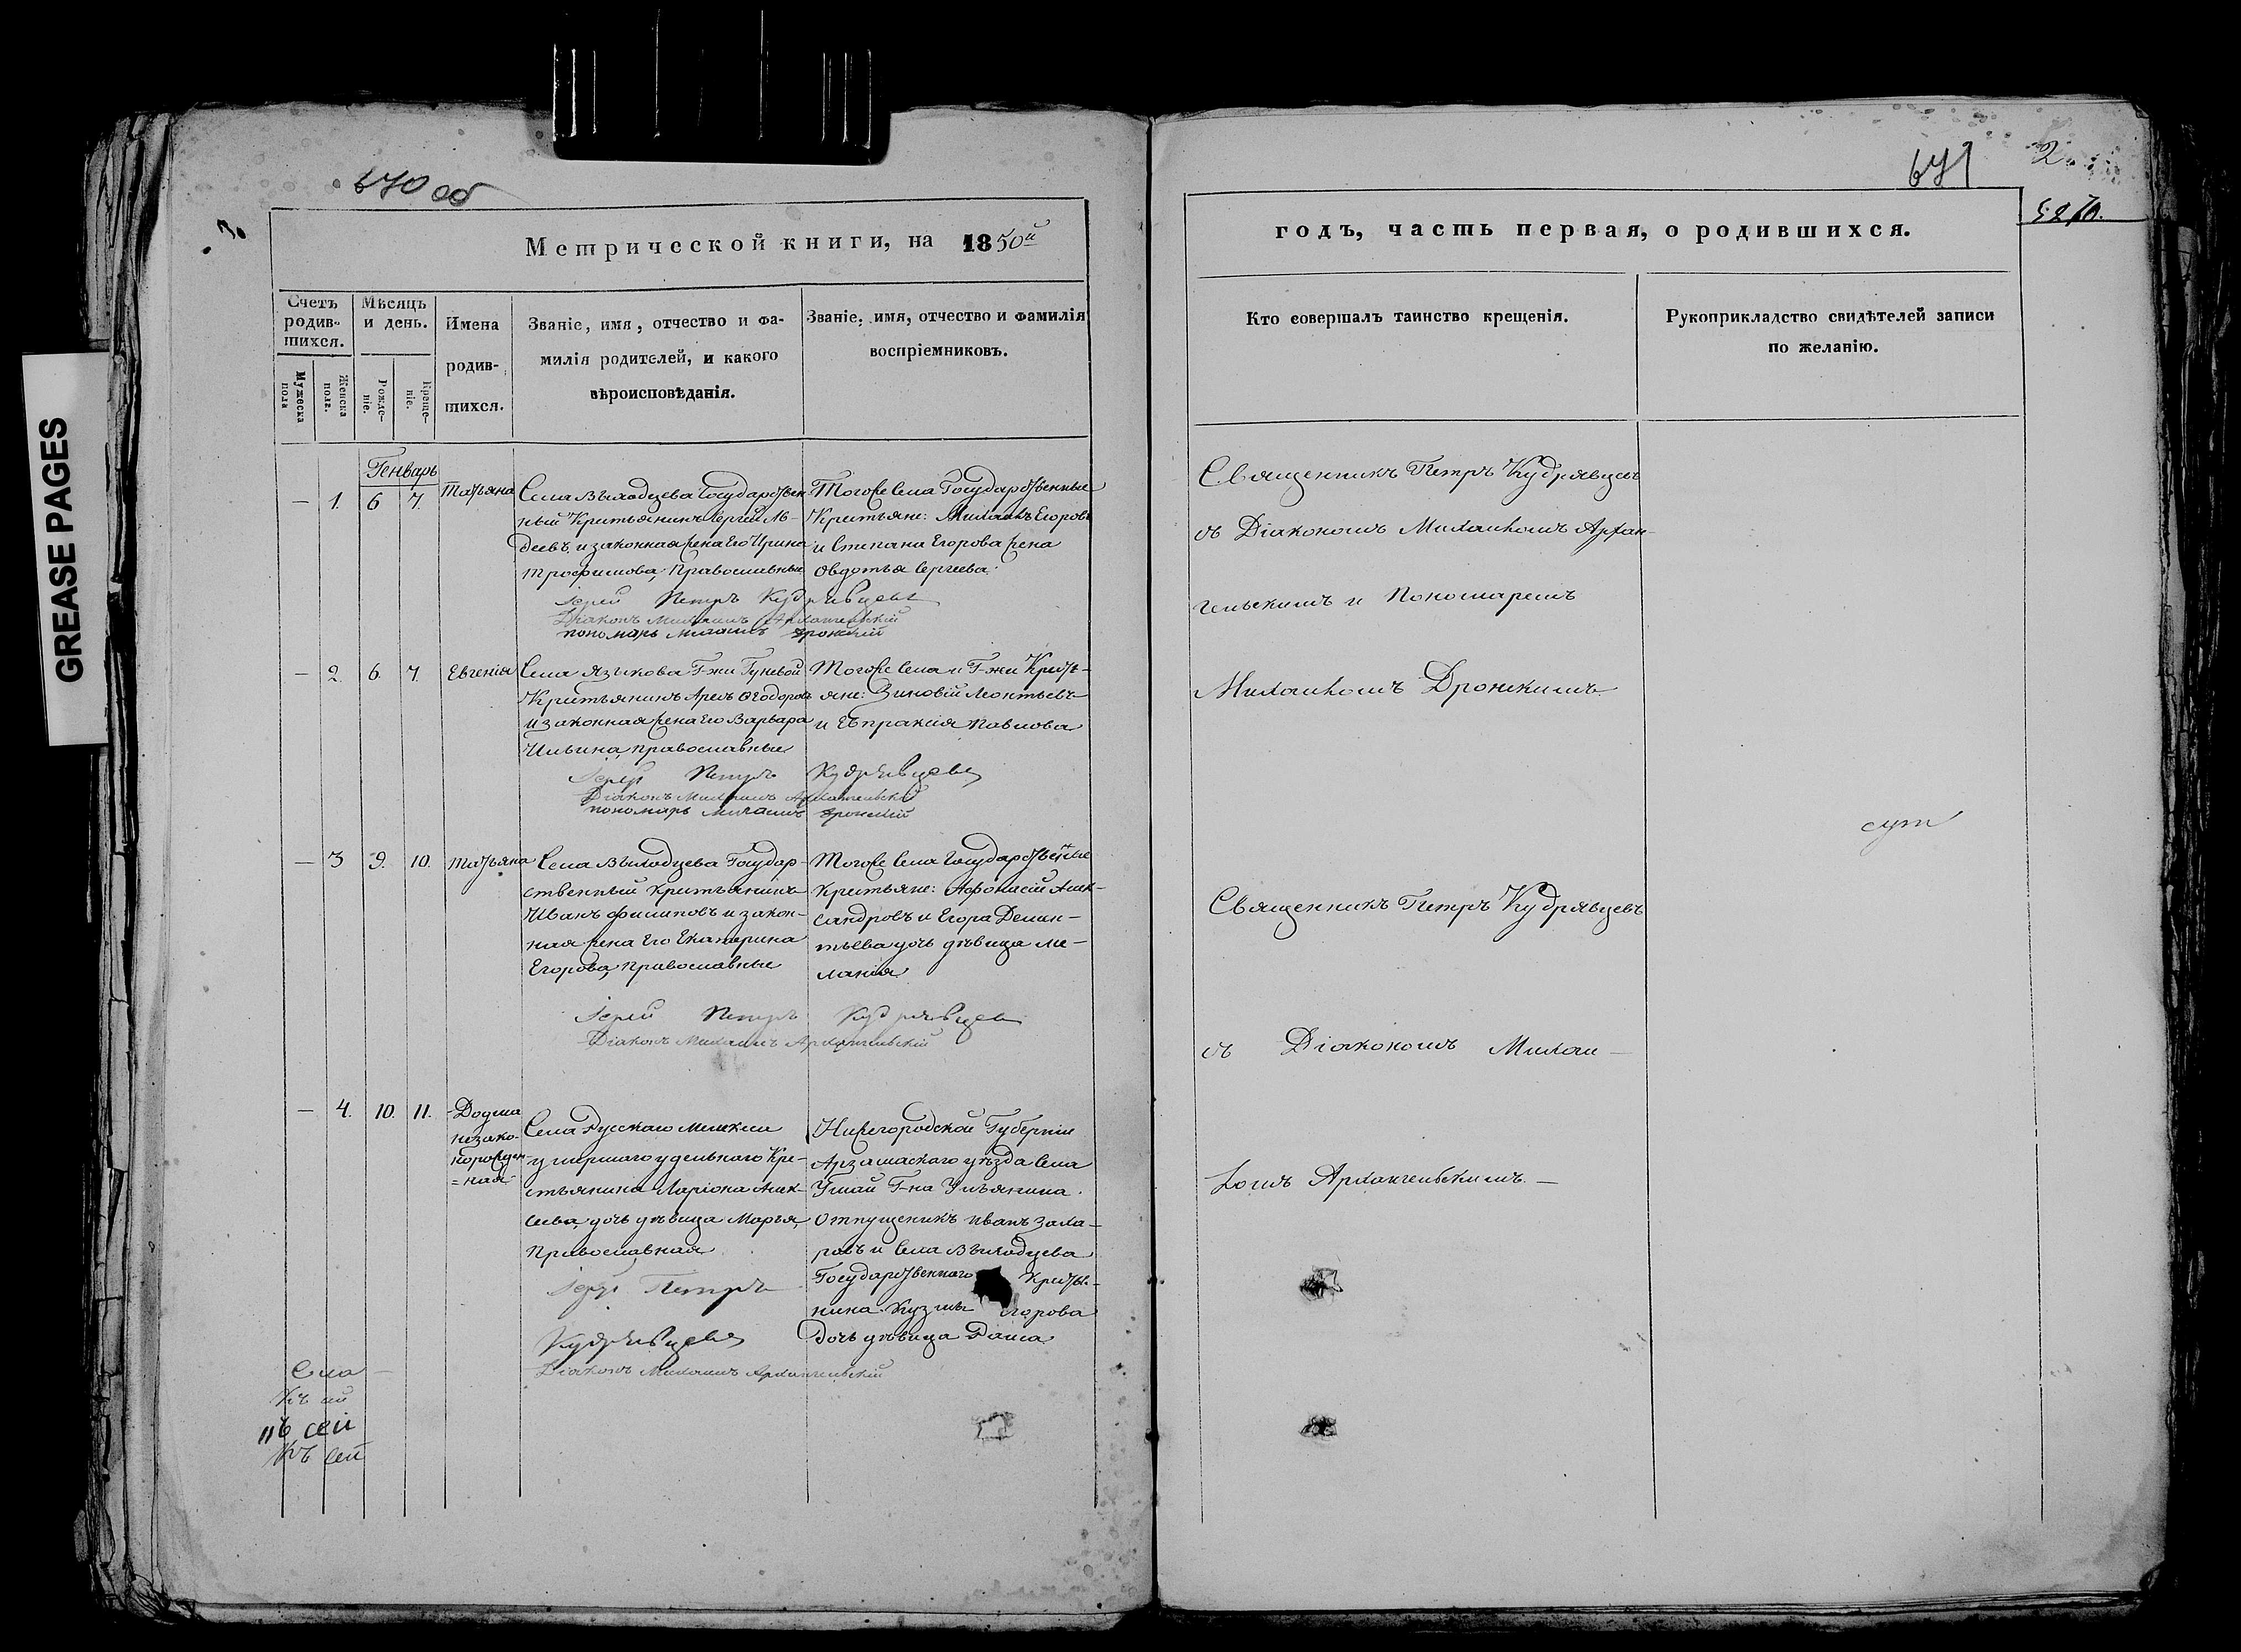 GREASE PAGES
670 об
Метрической книги, на 1850й
Счетъ родив-шихся.
Мѣсяцъ и день.
Имена родив-шихся.
Званіе, имя, отчество и фа-
милія родителей, и какого
вѣроисповѣданія.
Званіе, имя, отчество и фамилія
воспріемниковъ.
Мужеска пола
Женска пола.
Рожде-ніе.
Креще-ніе.
Генварь
— 1. 6 7. Татьяна
Села Выходцева Государствен
ный Крестьянинъ Сергій Ав-
деевъ и законная жена Его Ирина
Трофимова, Православные
Тогоже Села Государственные
Крестьяне: Михаилъ Егоровъ
и Степана Егорова жена
Овдотья Сергеева.
Іерей Петръ Кудрявцевъ
Діаконъ Михаилъ Архангельскій
пономарь Михаилъ Дронскій
— 2. 6. 7. Евгенія
Села Языкова Г-жи
Крестьянинъ Ѳеодоровъ
и законная жена Его Варвара
Ильина, православные
Тогоже Села и Г-жи Кресть-
яне: Зиновій Леонтьевъ
и Павлова
Іерей Петръ Кудрявцевъ
Діаконъ Михаилъ Архангельскій
пономарь Михаилъ Дронскій
— 3 9. 10. Татьяна
Села Выходцева Государ-
ственный крестьянинъ
Иванъ Филиповъ и закон-
ная жена Его Екатерина
Егорова, православные
Тогоже Села Государственные
крестьяне: Афонасій Алек-
сандровъ и Егора Демен-
тьева дочь дѣвица Ме-
ланія
Іерей Петръ Кудрявцевъ
Діаконъ Михаилъ Архангельскій
— 4. 10. 11. Домна
незако-
норожден-
=ная
Села Русскаго
умершаго удельнаго Кре-
стьянина Ларіона Алек-
сеева, дочь дѣвица Марья,
Православная
Нижегородской Губерніи
Арзамаскаго уѣзда Села
Г-на Ульянина
Отпущеникъ Иванъ Заха-
ровъ и Села Выходцева
Государственнаго Крестья-
нина Кузмы Егорова
дочь дѣвица
Іерей Петръ
Кудрявцевъ
Діаконъ Михаилъ Архангельскій
сей
Къ сей
671
2
годъ, часть первая, о родившихся.
Кто совершалъ таинство крещенія.
Рукоприкладство свидѣтелей записи
по желанію.
Священникъ Петръ Кудрявцевъ
съ Діакономъ Михаиломъ Архан-
гельскимъ и Пономаремъ
Михаиломъ Дронскимъ
Священникъ Петръ Кудрявцевъ
съ Діакономъ Михаи-
ломъ Архангельскимъ. —